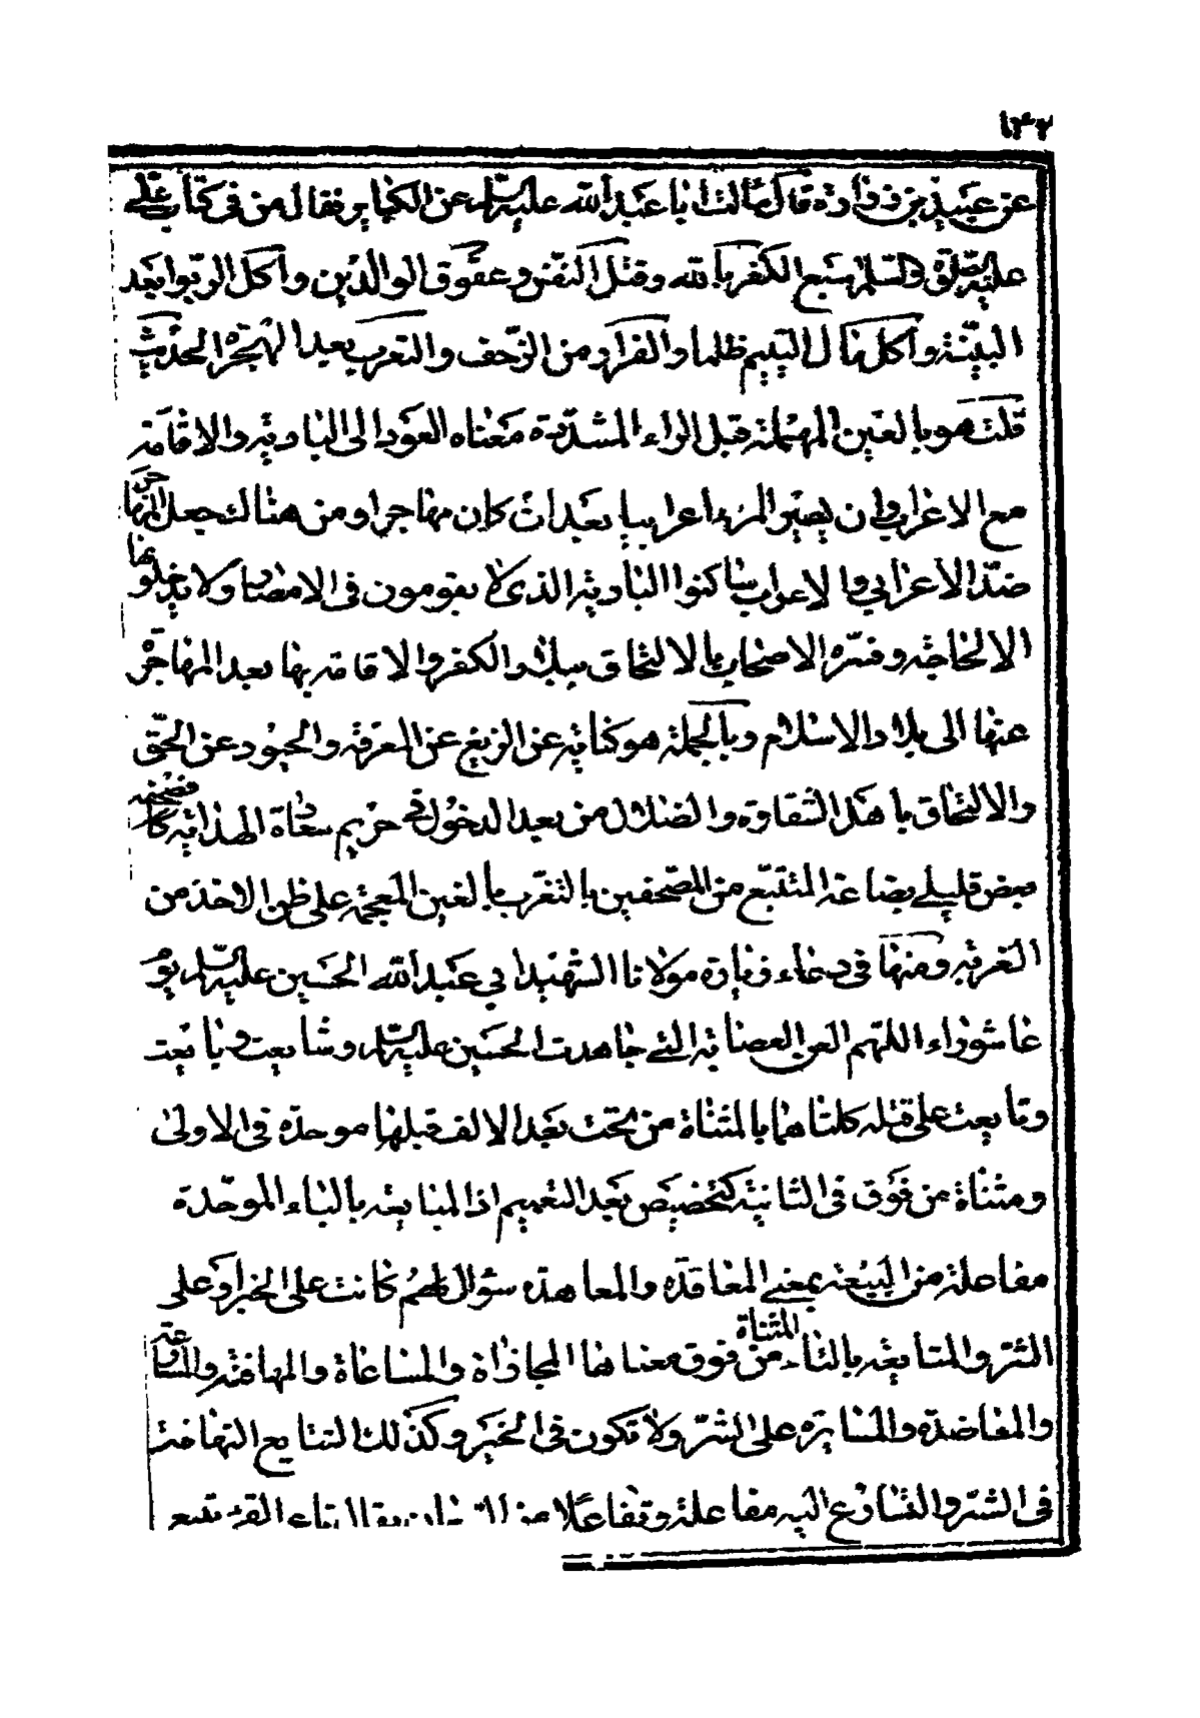 ١٤٢
عن عبيد بن زرارة قال سالت ابا عبد الله عليه السلم عن الكباير فقال هن في كتاب علي
عليه الصلوة والتسليم سبع الكفر بالله وقتل النفس وعقوق الوالدين واكل الربوا بعد
البينة واكل مال اليتيم ظلما والفرار من الزحف والتعرب بعد الهجرة الحديث
قلت هو بالعين المهملة قبل الراء المشددة معناه العود الى البادية والاقامة
مع الاعراب وان يصير المرء اعرابيا بعد ان كان مهاجرا ومن هنالك جعل المهاجر
ضد الاعرابي والاعراب ساكنوا البادية الذي لا يقومون في الامصار ولا يدخلونها
الا لحاجة وفسره الاصحاب بالالتحاق ببلاد الكفر والاقامة بها بعد المهاجرة
عنها الى بلاد الاسلام وبالجملة هو كناية عن الزيغ عن المعرفة والحيود عن الحق
والالتحاق باهل الشقاوة والضلال من بعد الدخول في حريم سعادة الهداية فصحفه
بعض قليلي بضاعة التتبع من المصحفين بالتغرب بالغين المعجمة على ظن الاخذ من
الغربة ومنها في دعاء زيارة مولانا الشهيد ابي عبد الله الحسين عليه السلم يوم
عاشوراء اللهم العن العصابة التي جاهدت الحسين عليه السلم وشايعت وبايعت
وتايعت على قتله كلتاهما بالمثناة من تحت بعد الالف قبلها موحدة في الاولى
ومثناة من فوق في الثانية كتخصيص بعد التعميم اذ المبايعة بالباء الموحدة
مفاعلة من البيعة بمعنى المعاقدة والمعاهدة سواء كانت على الخير او على
الشر والمتايعة بالتاء المثناة من فوق معناها المجاراة والمساعاة والمهافتة والمعاونة
والمعاضدة والمسايرة على الشر ولا تكون في الخير وكذلك التتايع التهافت
في الشر والتسارع اليه مفاعلة وتفاعلا من